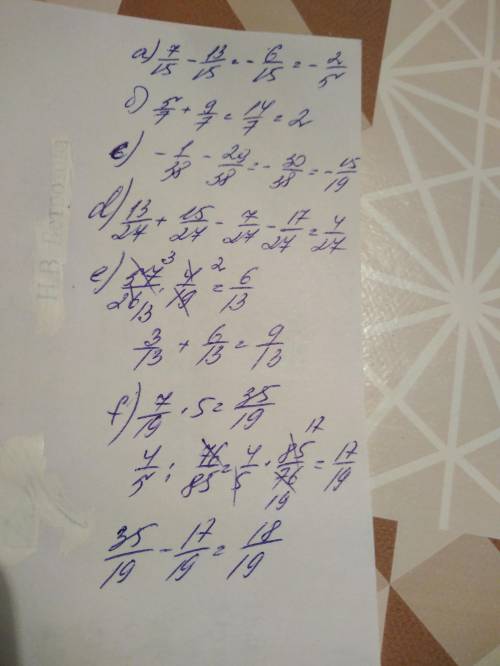 а) 7/15 - 13/15 = - 6/15 = - 2/5
б) 5/7 + 9/7 = 14/7 = 2
c) - 1/38 - 29/38 = - 30/38 = - 15/19
d) 13/27 + 15/27 - 7/27 - 17/27 = 4/27
e) 57 3/26 13 · 4 2/19 = 6/13
3/13 + 6/13 = 9/13
f) 7/19 · 5 = 35/19
4/5 : 76/85 = 4/5 · 85 17/76 19 = 17/19
35/19 - 17/19 = 18/19